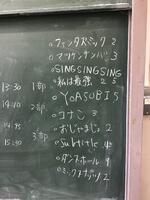 ○ファンタズミック 2
○マツケンサンバ 3
○SINGSINGSING
○私は最強 2
○YOASOBI 5
○コナン 3
○おじゃまじょ 2
○Subtitle
○ダンスホール
○ミックスナッツ 2
13:30 1部
14:10 2部
3部
15:30